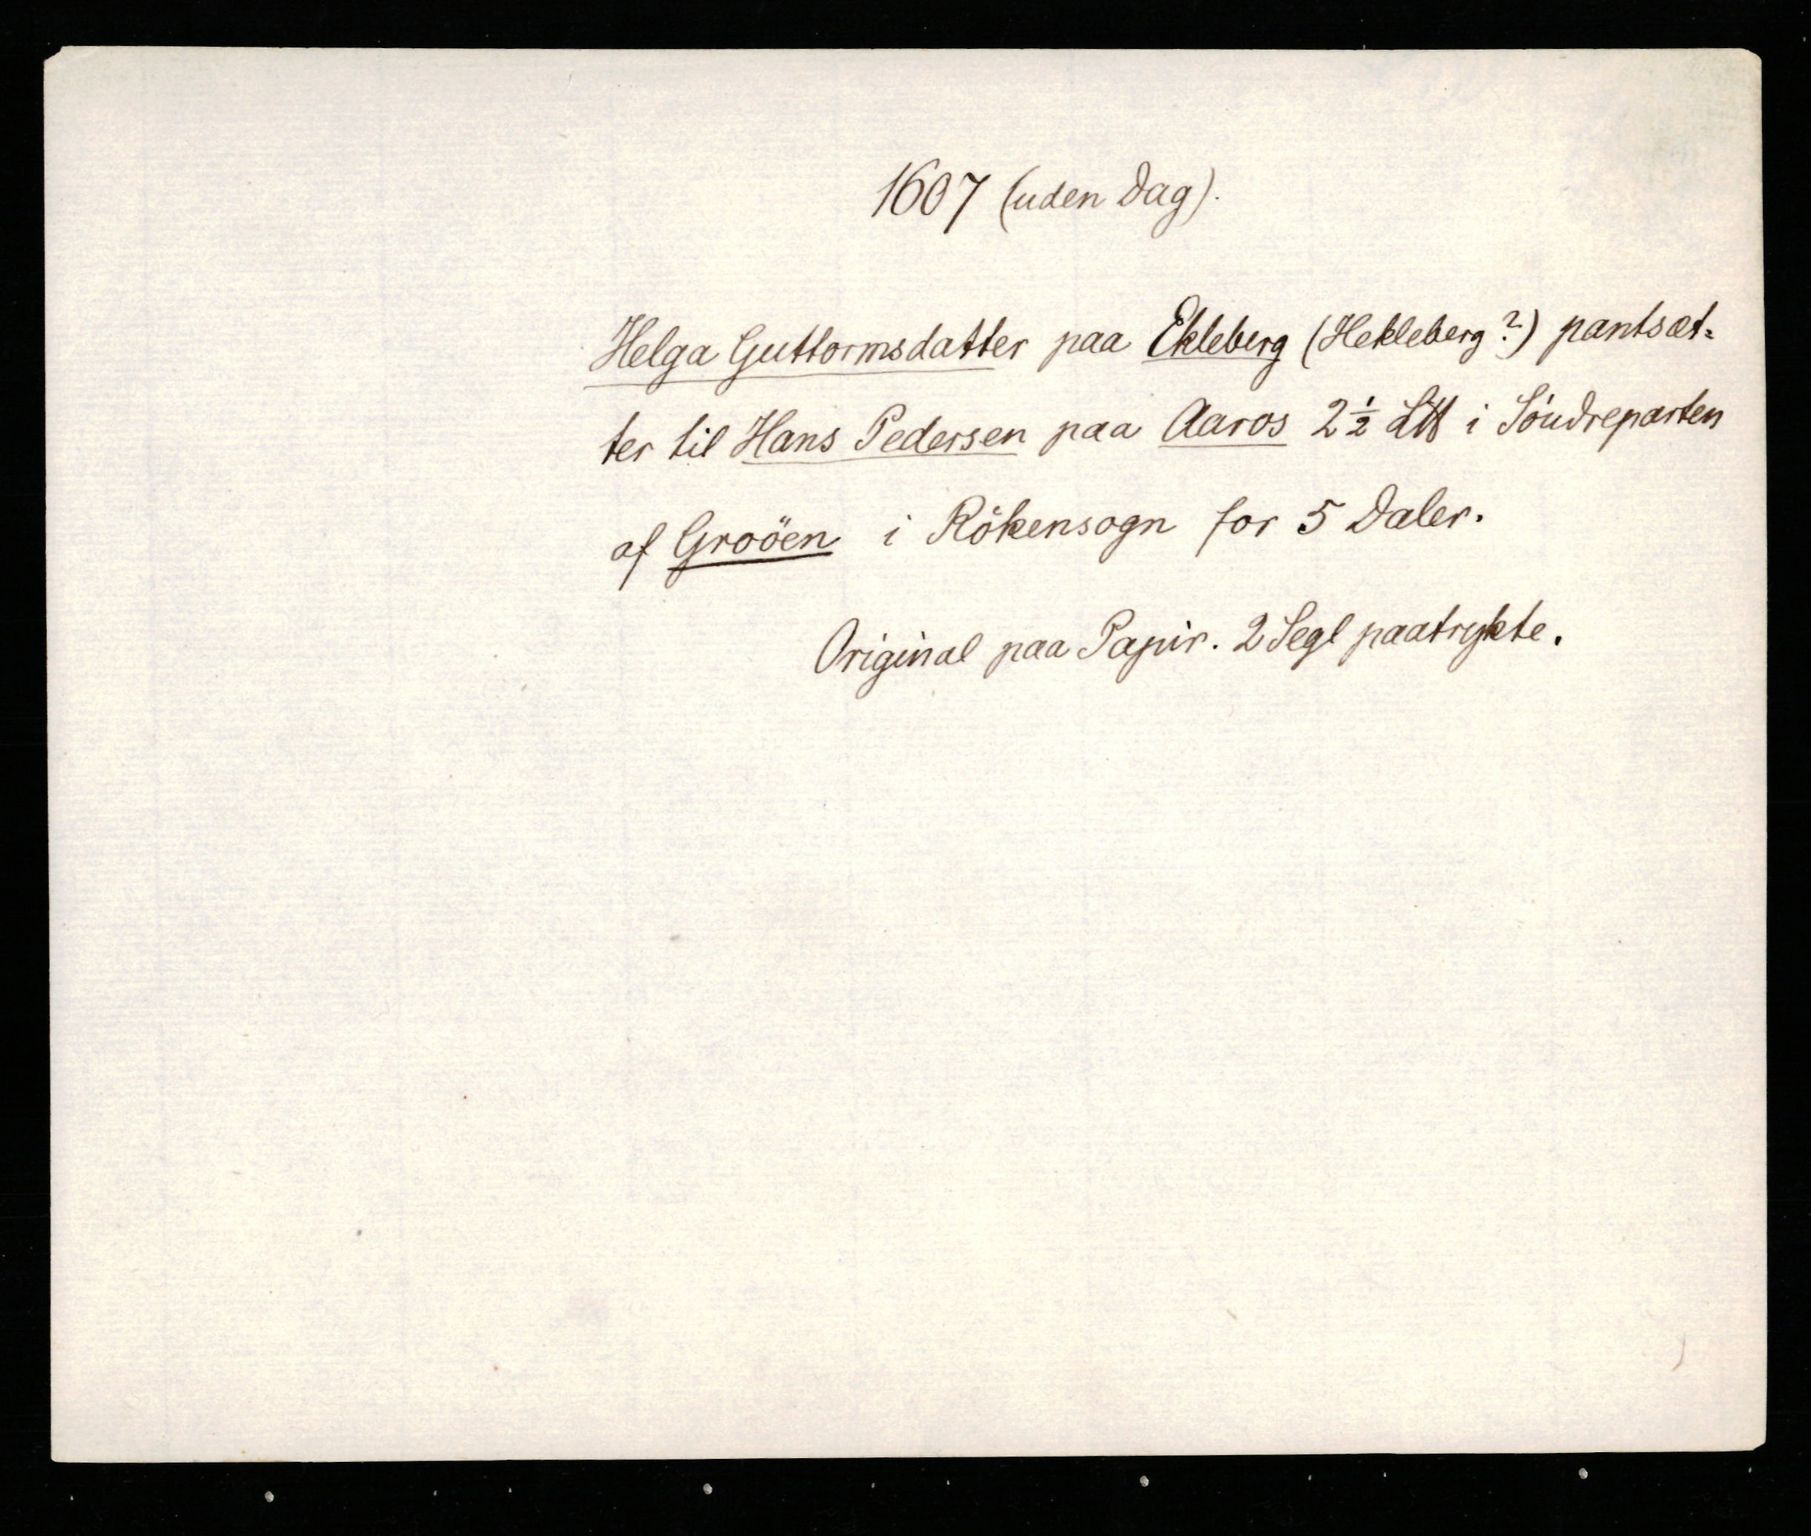 1607 (uden Dag).
Helga Guttormsdatter paa Ekleberg (Hekleberg?) pantsæt-
ter til Hans Pedersen paa Aaros 2 ½ L℔ i Söndreparten
af Groöen i Rökensogn for 5 Daler.
Original paa Papir. 2 Segl paatrykte.